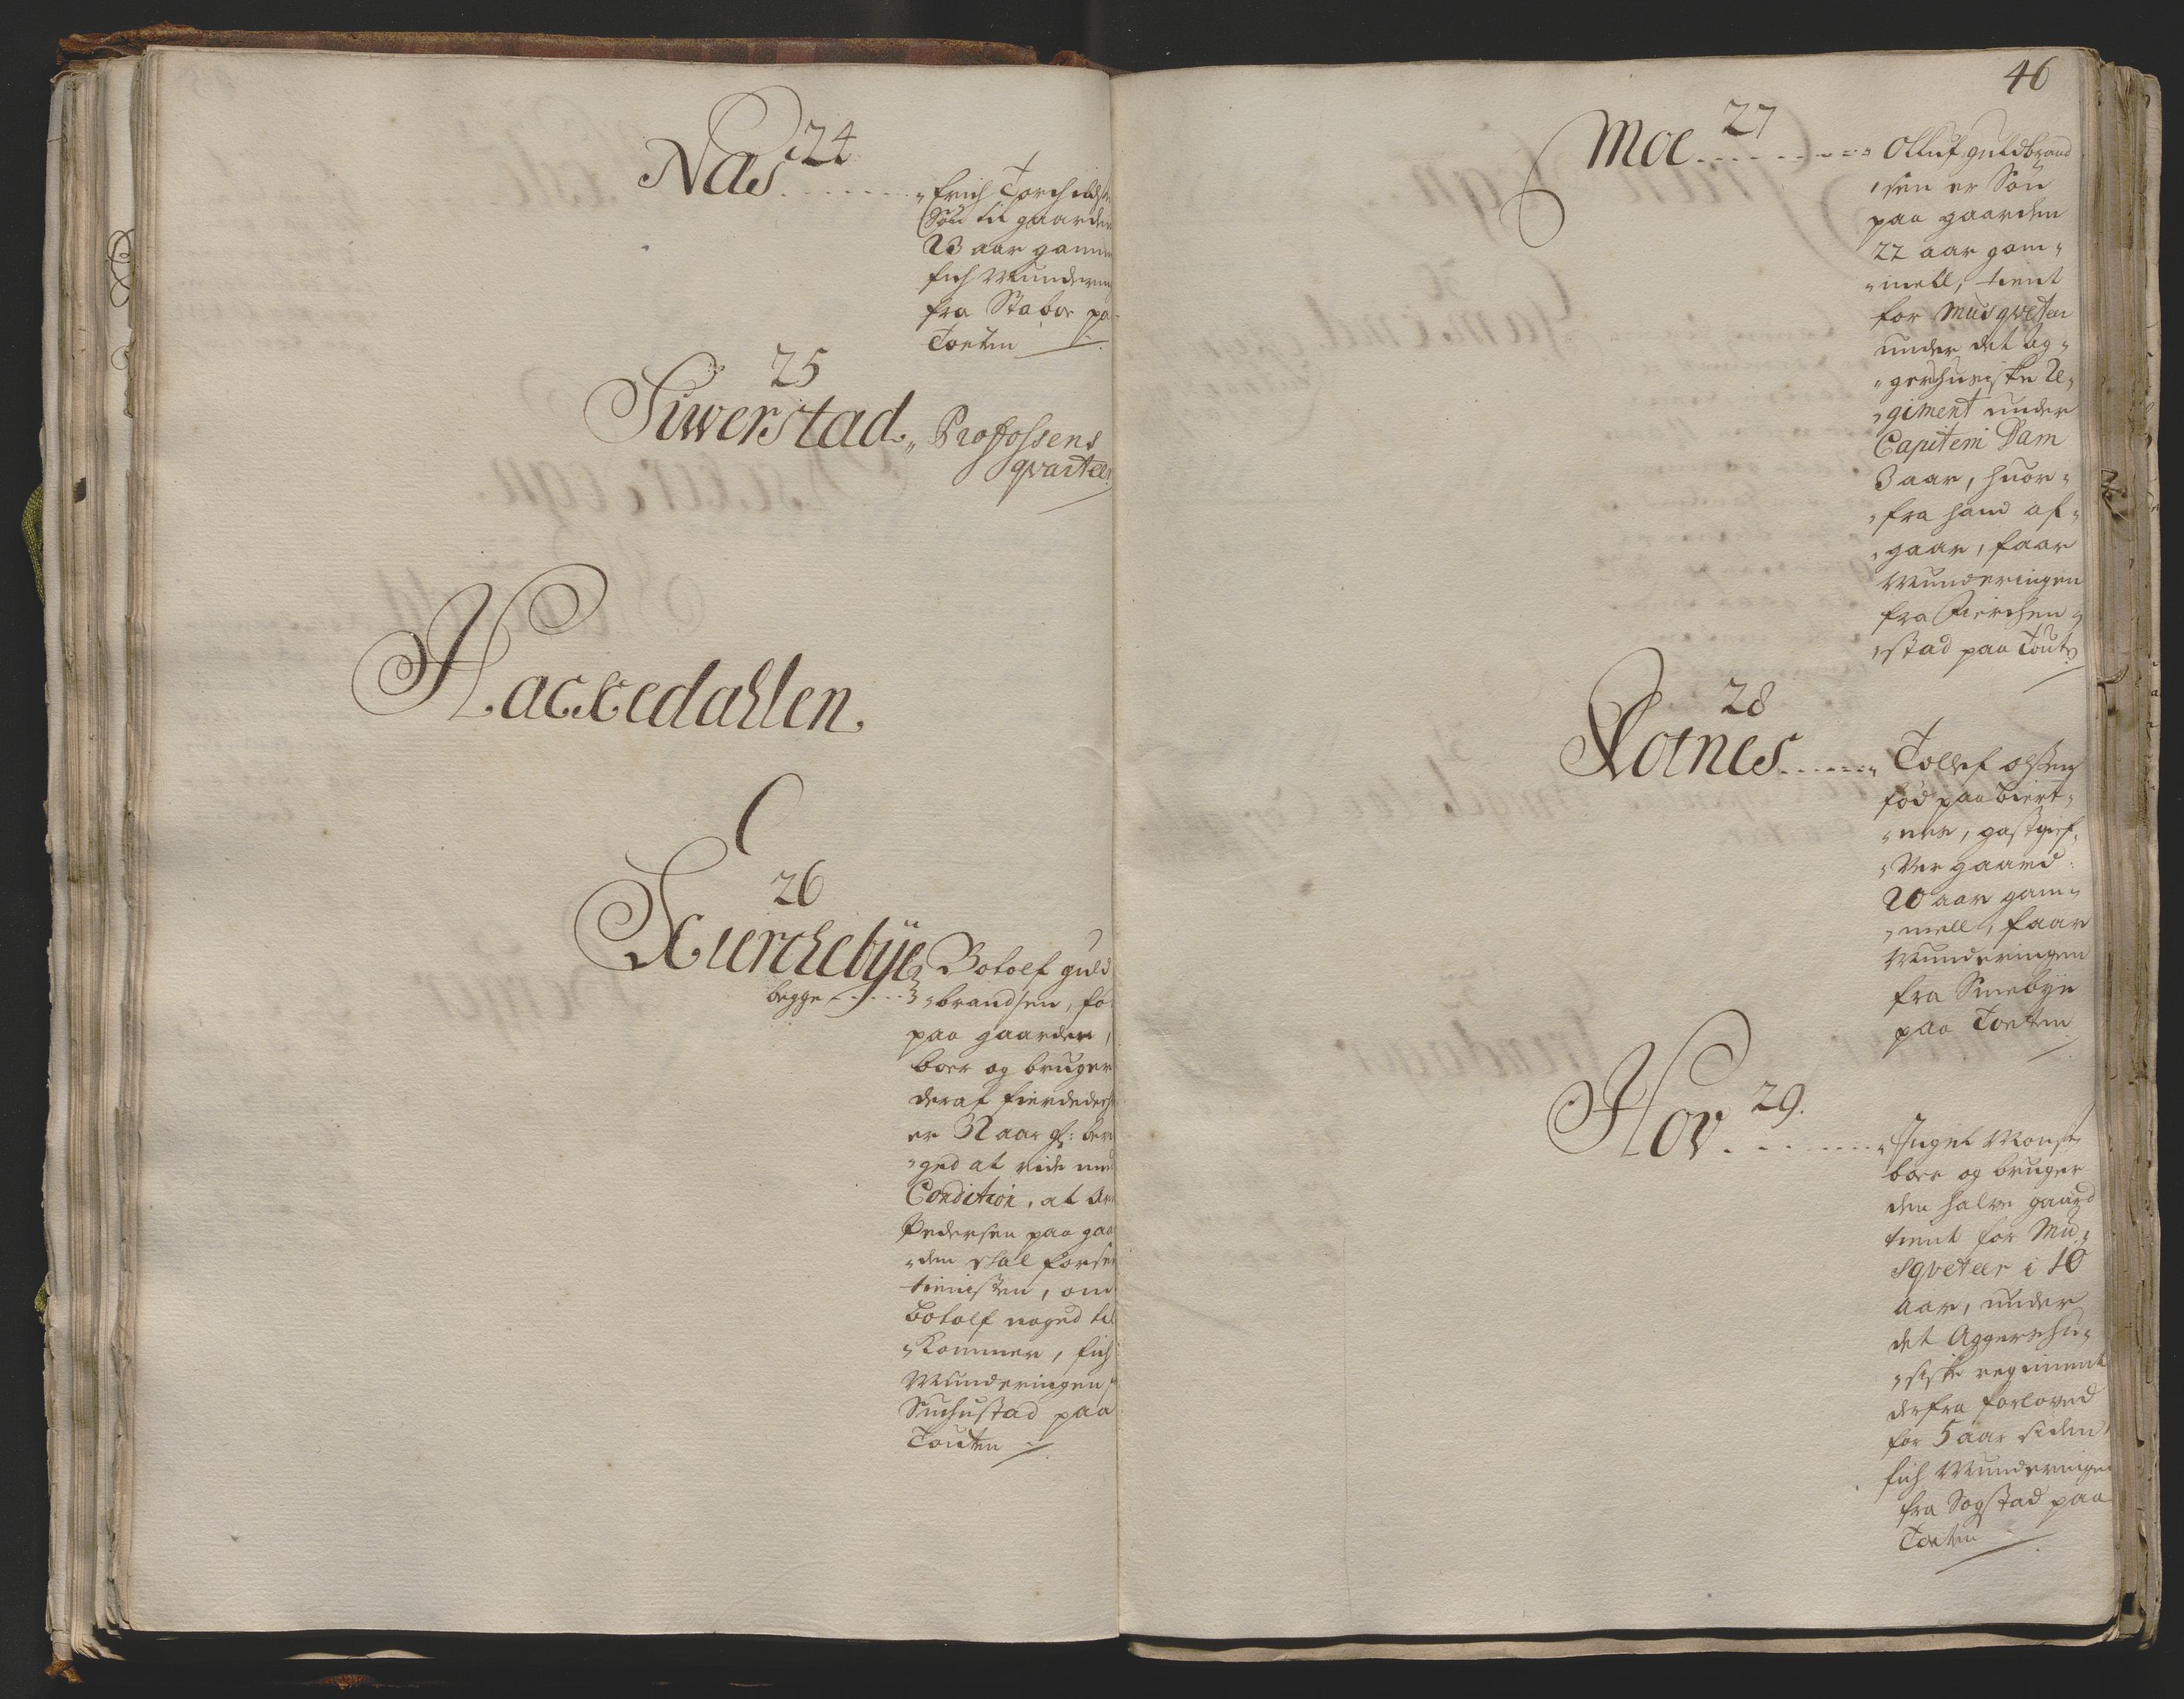 24
Næs
Erich Torchilds
Søn til gaarden
23 aar gamm
fich Munderin
fra Staboe pa
Toeten
25
Siwerstad
Proffossens
qvarteer
Hackedahlen
26
Kierchebye
begge
Botolf guld
brandsen, fø
paa gaarden,
boer og bruger
deraf fierdedeel
er 32 aar gl: 
ged at ride med
Condition, at
Pedersen paa gaar
den skal forse
tienisten, om
Botolf noged til
kommer, fich
Munderingen f
paa
Touten
46
27
Moe
Olluf guldbrand
sen er Søn
paa gaarden
22 aar gam
mell, tient
for Musqveteer
under det Ag
gershusiske Re
giment under
Capiteni Dam
3 aar, huor
fra hand af
gaar, faar
Munderingen
fra
stad paa Tout
28
Rotnes
Tollef olsen
fød paa
gaard
20 aar gam
mell, faar
Munderingen
fra Sinebye
paa Toeten
29.
Hov
Ingel Mons
boer og bruger
den halve gaard
tient for Mu
sqveteer i 10
aar, under
det Aggershu
siske regiment
derfra forloved
for 5 aar siden
fich Munderinge
fra Sogstad paa
Toeten